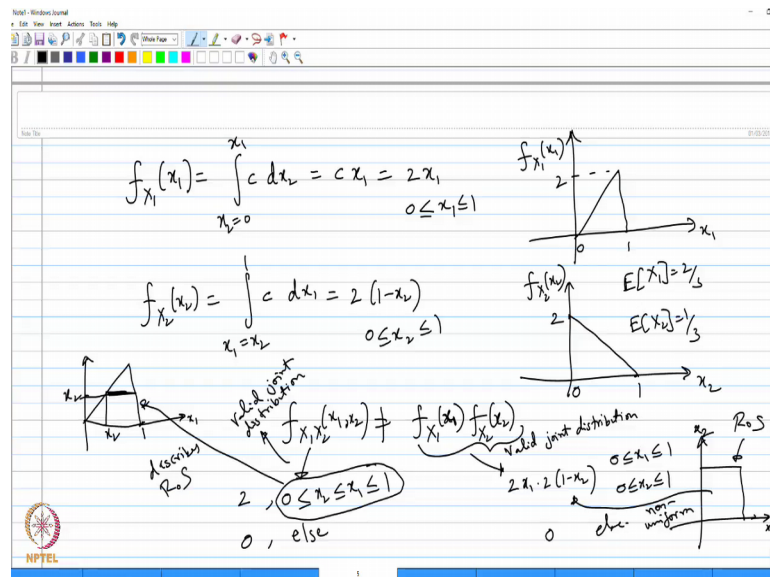 Note1 - Windows Journal
e Edit View Insert Actions Tools Help
Whole Page
B I
Note Title
01/03/201
f_{X_1}(x_1) = ∫_{x_2=0}^{x_1} c dx_2 = c x_1 = 2x_1
0 ≤ x_1 ≤ 1
f_{X_1}(x_1)
2
0 1 x_1
E[X_1] = 2/3
f_{X_2}(x_2) = ∫_{x_1=x_2}^{1} c dx_1 = 2(1-x_2)
0 ≤ x_2 ≤ 1
f_{X_2}(x_2)
2
E[X_2] = 1/3
0 1 x_2
x_2
x_2 1 x_1
describes
RoS
valid joint
distribution
f_{X_1X_2}(x_1,x_2) ≠ f_{X_1}(x_1) f_{X_2}(x_2)
valid joint distribution
2 , 0 ≤ x_2 ≤ x_1 ≤ 1
0 , else
2x_1 · 2(1-x_2) 0 ≤ x_1 ≤ 1
0 ≤ x_2 ≤ 1
0 else
non-
uniform
x_2
RoS
x
NPTEL
5